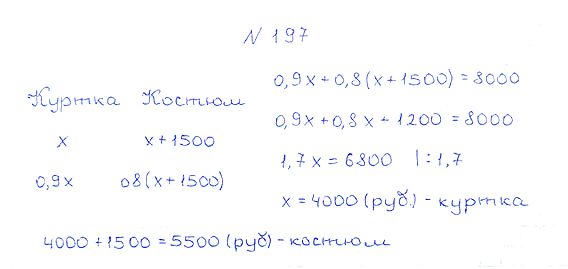 N 197
Куртка Костюм
x x+1500
0,9x 08(x+1500)
0,9x+0,8(x+1500)=8000
0,9x+0,8x+1200=8000
1,7x=6800 |:1,7
x=4000(руб.)-куртка
4000+1500=5500(руб)-костюм